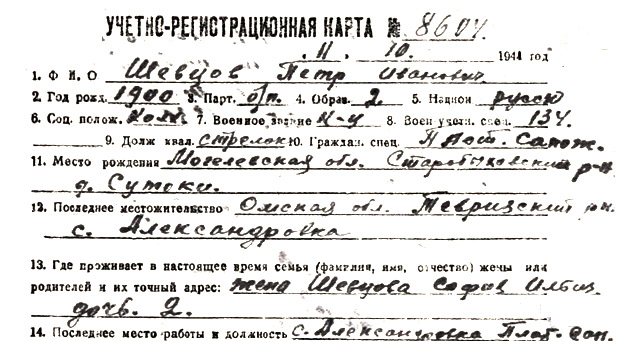 УЧЕТНО-РЕГИСТРАЦИОННАЯ КАРТА № 8604.
11. 10. 1941 год
1. Ф И О Шевцов Петр Иванович.
2. Год рожд. 1900 3. Парт. б/п. 4. Образ. 2. 5. Национ русск
6. Соц. полож. Колх. 7. Военное звание к-ц 8. Воен учетн. спец. 134.
9. Долж квал. стрелок 10. Граждан. спец. Плот. Сапож.
11. Место рождения Могелевская обл. Старобыховский р-н
д. Сутоки.
12. Последнее местожительство Омская обл. Тевризский рн.
с. Александровка
13. Где проживает в настоящее время семья (фамилия, имя, отчество) жены или
родителей и их точный адрес: жена Шевцова София
дочь. 2.
14. Последнее место работы и должность с. Александровка Плот-Сап.